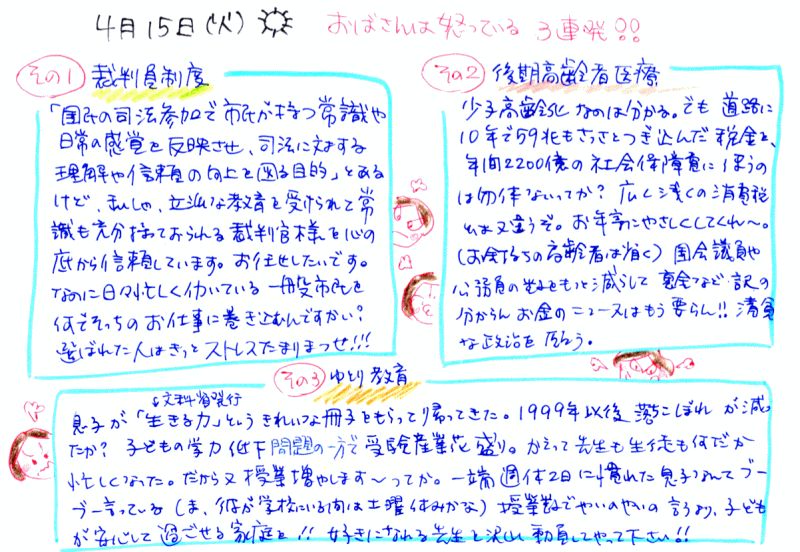 4月15日(火)
おばさんは怒っている 3連発!!
その1 裁判員制度
「国民の司法参加で市民が持つ常識や
日常の感覚を反映させ、司法に対する
理解や信頼の向上を図る目的」とある
けど、私しゃ、立派な教育を受けられて常
識も充分持っておられる裁判官様を心の
底から信頼しています。お任せしたいです。
なのに日々忙しく働いている一般市民を
何でそっちのお仕事に巻き込むんですかい?
選ばれた人はきっとストレスたまりまっせ!!!
その2 後期高齢者医療
少子高齢化なのは分かる。でも道路に
10年で59兆もさっさとつぎ込んだ税金を、
年間2200億の社会保障費に使うの
は勿体ないってか? 広く浅くの消費税
とは又違うぞ。お年寄にやさしくしてくれ〜。
(お金持ちの高齢者は省く) 国会議員や
公務員の数をもっと減らして裏金など訳の
分からんお金のニュースはもう要らん!! 清貧
な政治を願う。
その3 ゆとり教育
文科省発行
息子が「生きる力」というきれいな冊子をもらって帰ってきた。1999年以後落こぼれが減っ
たか? 子どもの学力低下問題の一方で受験産業花盛り。かえって先生も生徒も何だか
忙しくなった。だから又授業増やします〜ってか。一端週休2日に慣れた息子なんてブー
ブー言っている(ま、彼が学校にいる内は土曜休みかな) 授業数でやいのやいの言うより、子ども
が安心して過ごせる家庭を!! 好きになれる先生を沢山動員してやって下さい!!